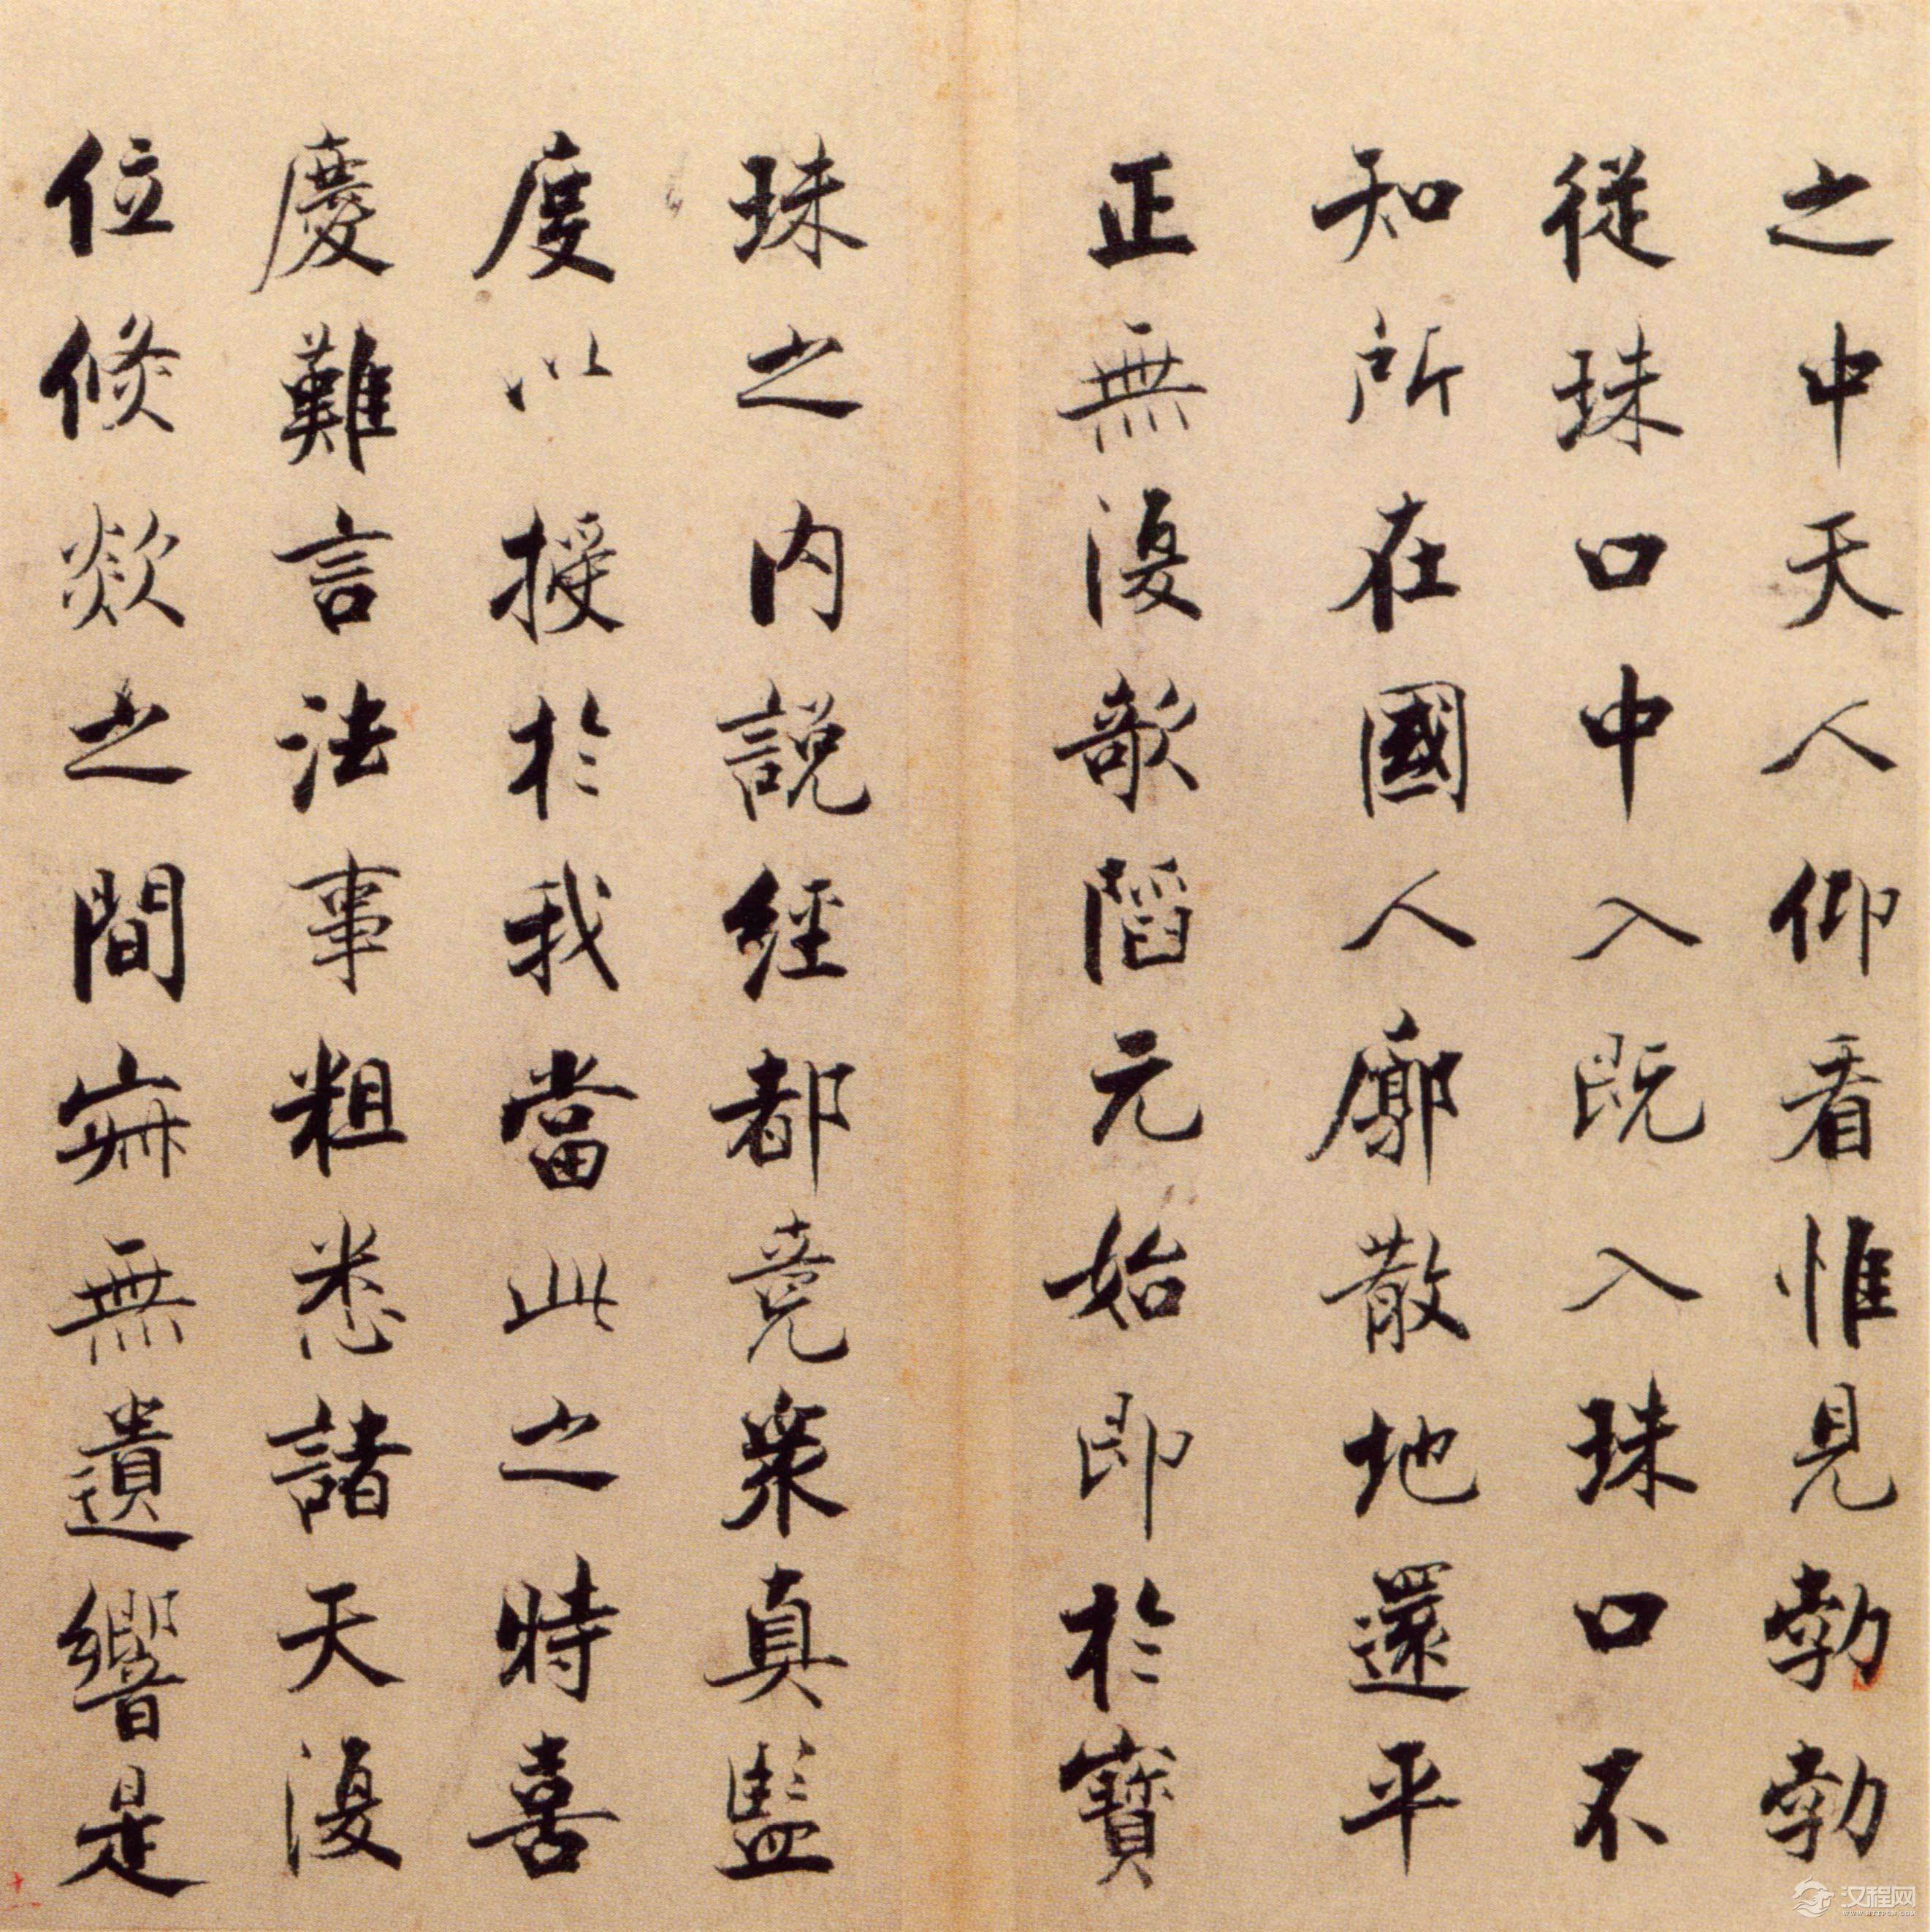 之中天人仰看惟見勃勃
從珠口中入既入珠口不
知所在國人廓散地還平
正無復欹陷元始即於寶
珠之内說經都竟衆真監
度以授於我當此之時喜
慶難言法事粗悉諸天復
位倐欻之間寂無遺響是
汉程网
WWW.HTTPCN.COM